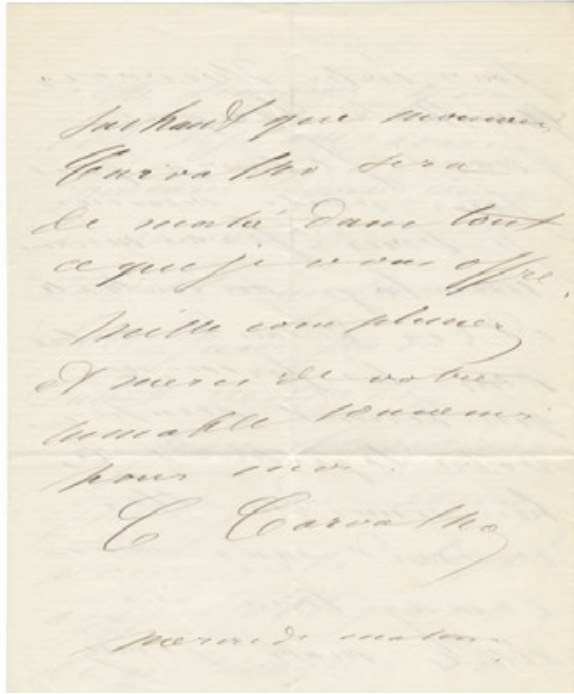 sachant que monsieur
Carvalho sera
de moitié dans tout
ce que je vous offre.
Mille compliments
et merci de votre
aimable souvenir
pour moi.
C Carvalho
mercredi matin